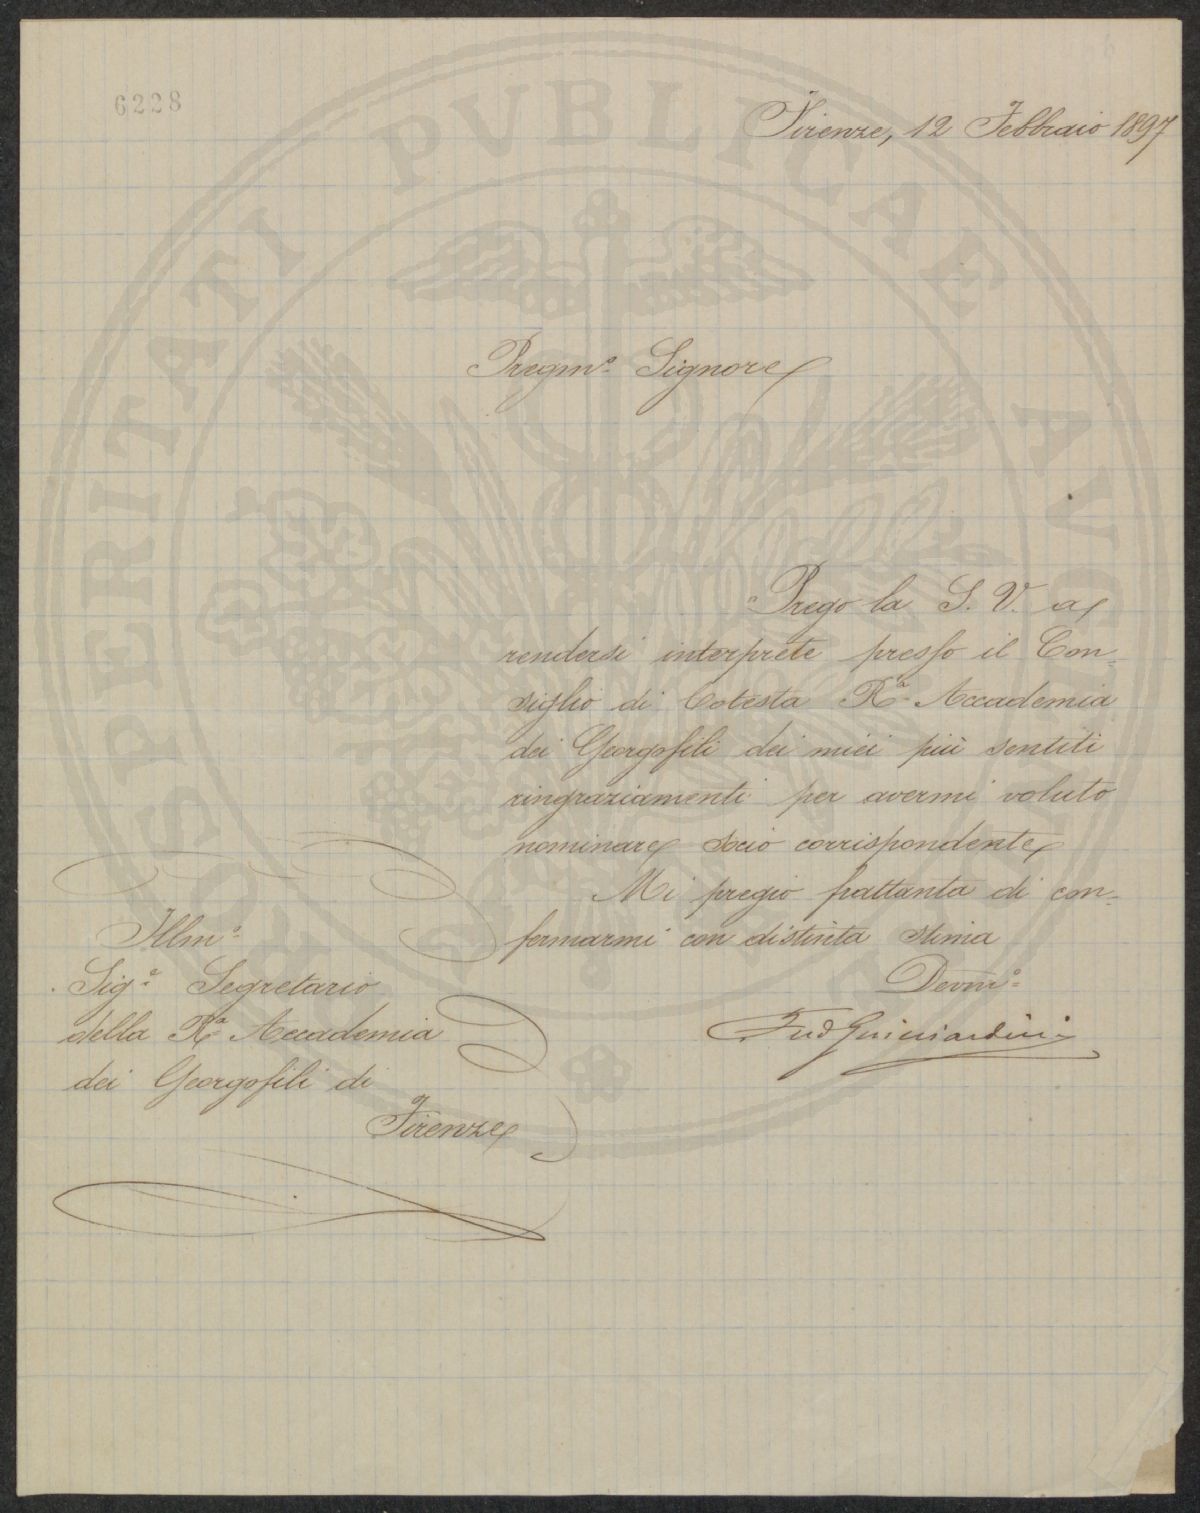 6228
Firenze, 12 Febbraio 1897
Pregmº Signore
Prego la S. V. a
rendersi interprete presso il Con=
siglio di Cotesta Rª Accademia
dei Georgofili dei miei più sentiti
ringraziamenti per avermi voluto
nominare socio corrispondente
Mi pregio frattanto di con=
fermarmi con distinta stima
Devmº
Fr Guicciardini
Illmº
Sigº Segretario
della Rª Accademia
dei Georgofili di
Firenze
PROSPERITATI PVBLICAE AVGENDAE